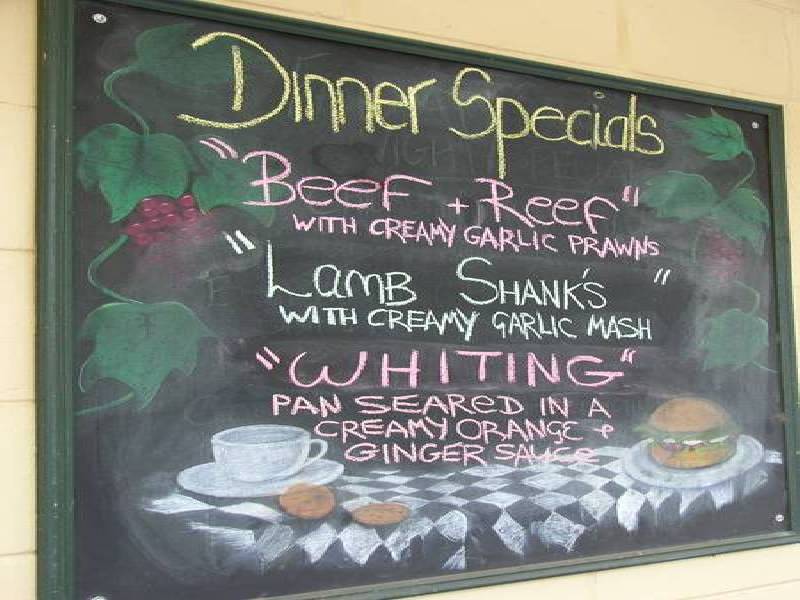 Dinner Specials
"Beef + Reef"
WITH CREAMY GARLIC PRAWNS
"Lamb Shank's"
WITH CREAMY GARLIC MASH
"WHITING"
PAN SEARED IN A
CREAMY ORANGE &
GINGER SAUCE